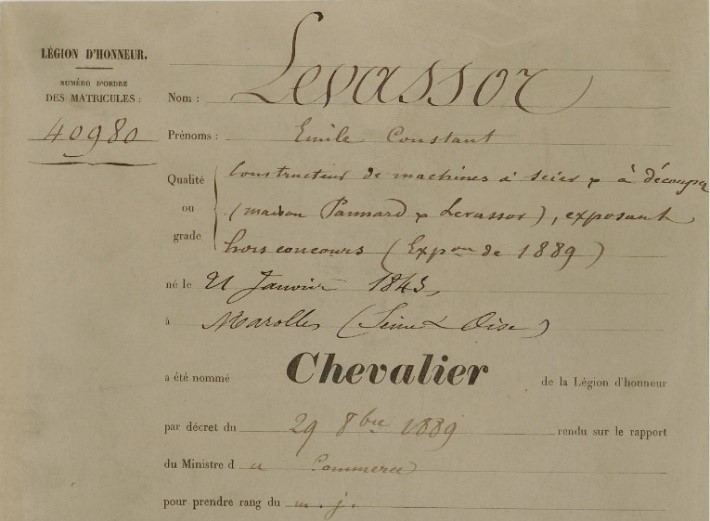 LÉGION D'HONNEUR.
NUMÉRO D'ORDRE
DES MATRICULES :
40980
Nom : Levassor
Prénoms : Emile Constant
Qualité ou grade
Constructeur de machines à scier & à découper
(maison Panhard & Levassor), exposant
hors concours (Expon de 1889)
né le 21 Janvier 1843,
à Marolles (Seine & Oise)
a été nommé Chevalier de la Légion d'honneur
par décret du 29 8bre 1889 rendu sur le rapport
du Ministre d u Commerce
pour prendre rang du m. j.